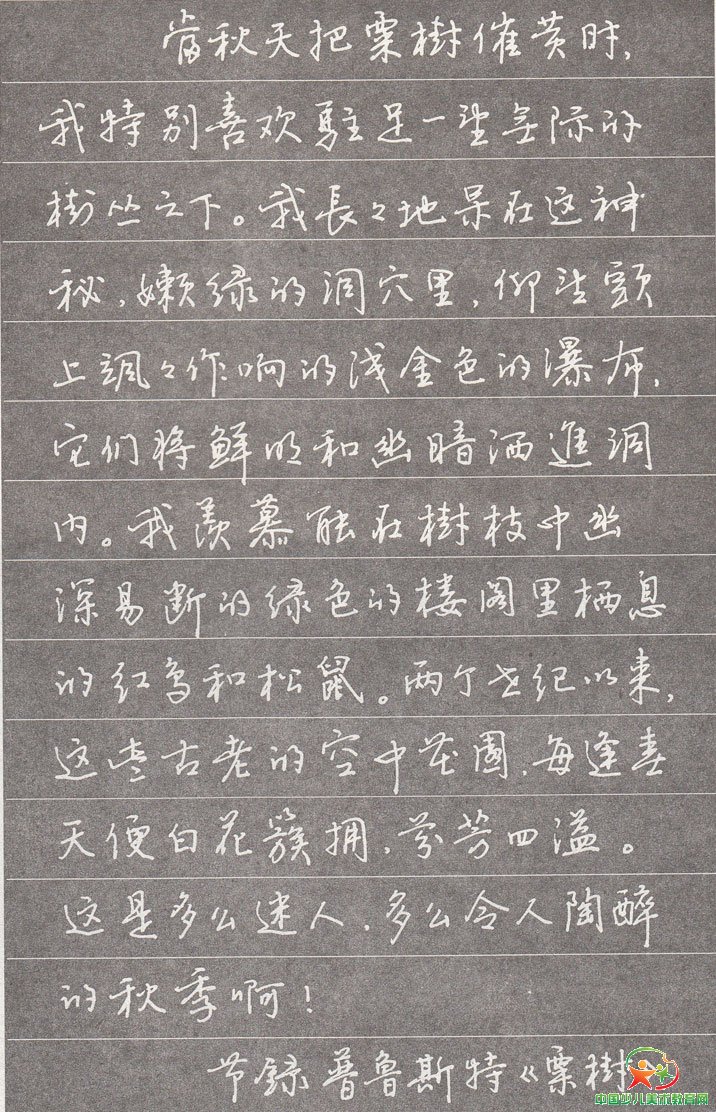 當秋天把栗樹催黄时,
我特别喜欢駐足一望无际的
樹丛之下。我長々地呆在这神
秘,嫩绿的洞穴里,仰望头
上飒々作响的浅金色的瀑布,
它们将鲜明和幽暗洒進洞
内。我羡慕融在樹枝中幽
深易断的绿色的楼阁里栖息
的红鸟和松鼠。两个世纪以来,
这些古老的空中花園,每逢春
天便白花簇拥,芬芳四溢。
这是多么迷人,多么令人陶醉
的秋季啊!
节録普鲁斯特《栗樹
中国少儿美术教育网